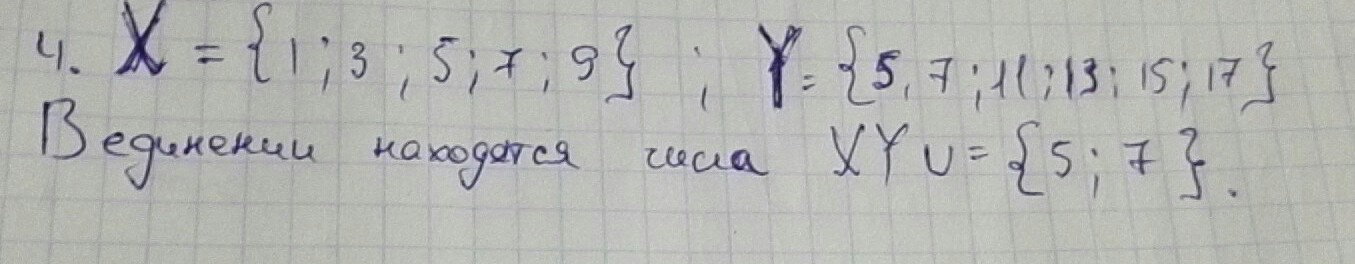 4. X = {1; 3; 5; 7; 9}; Y = {5, 7; 11; 13; 15; 17}
В единении находятся числа XY ∪ = {5; 7}.